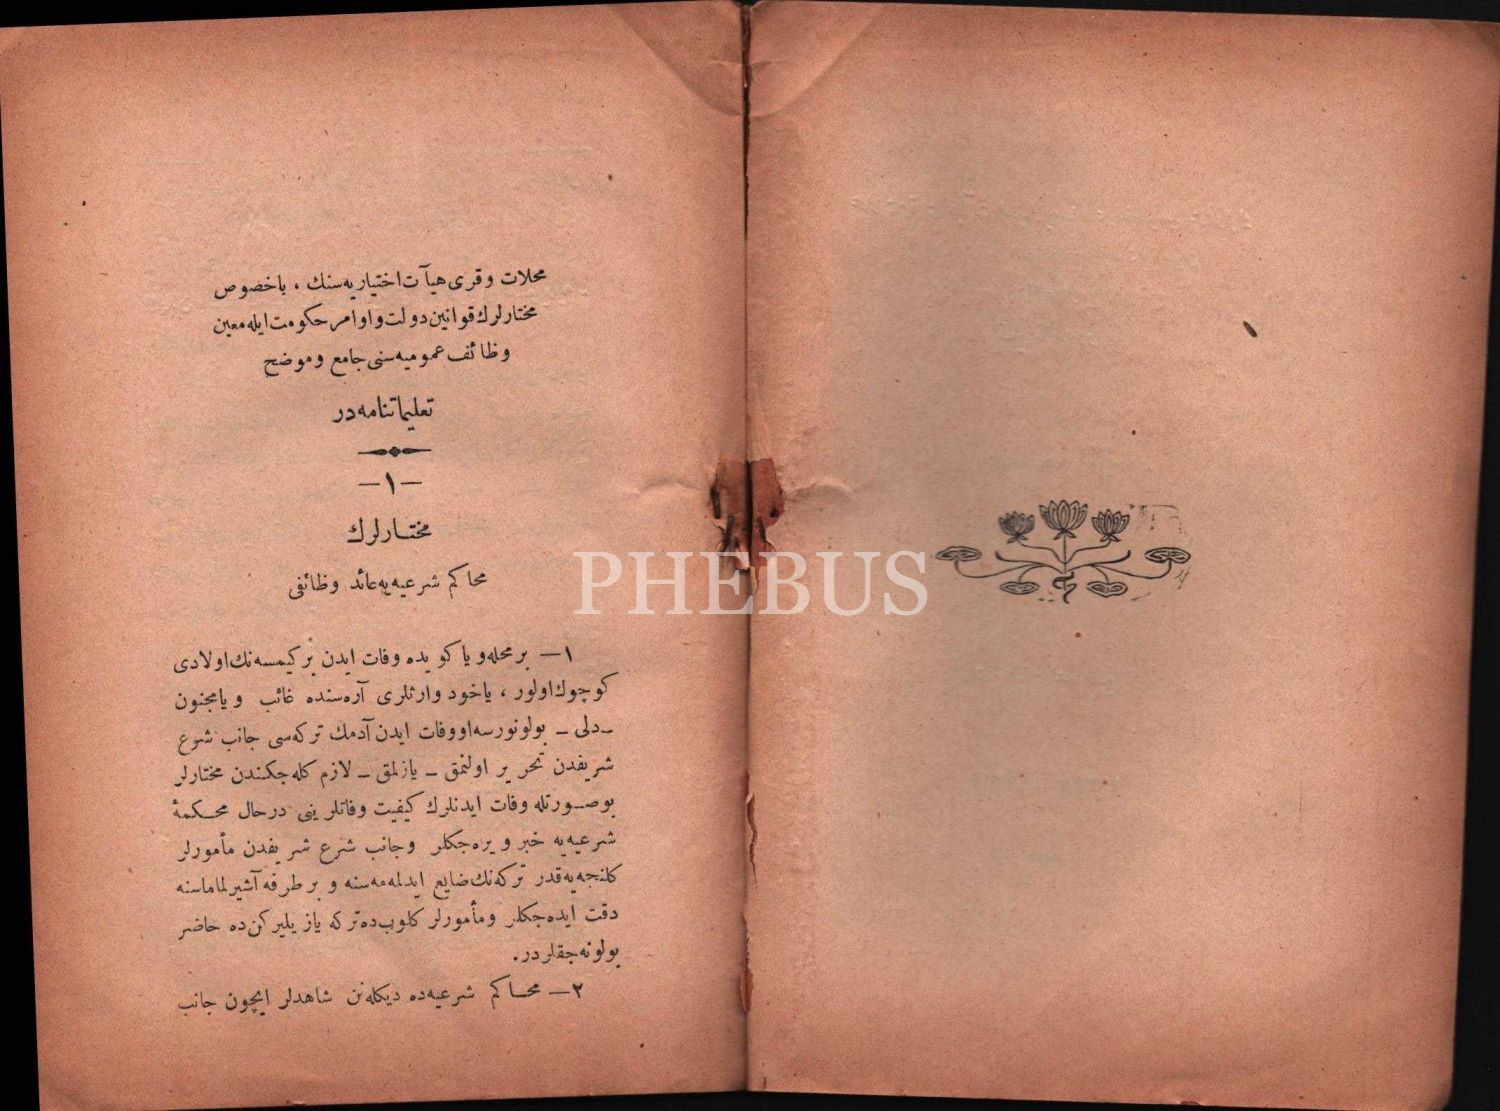 محلات و قرى هيآت اختياريه‌سنك ، باخصوص
مختارلرك قوانين دولت و اوامر حكومت ايله معين
وظائف عموميه‌سنى جامع و موضح
تعليماتنامه‌در
— ١ —
مختارلرك
محاكم شرعيه‌يه عائد وظائفى
١ — بر محله ويا كويده وفات ايدن بر كيمسه‌نك اولادى
كوچوك اولور ، ياخود وارثلرى آره‌سنده غائب ويا مجنون
ـ دلى ـ بولونورسه او وفات ايدن آدمك تركه‌سى جانب شرع
شريفدن تحرير اولنمق ـ يازلمق ـ لازم كله‌جكندن مختارلر
بو صورتله وفات ايدنلرك كيفيت وفاتلرينى درحال محكمهٔ
شرعيه‌يه خبر ويره‌جكلر وجانب شرع شريفدن مأمورلر
كلنجه‌يه‌قدر تركه‌نك ضايع ايدلمه‌مه‌سنه و بر طرفه آشيرلماماسنه
دقت ايده‌جكلر ومأمورلر كلوب‌ده تركه يازيليركن‌ده حاضر
بولونه‌جقلردر.
٢ — محاكم شرعيه‌ده ديكله‌نن شاهدلر ايچون جانب
PHEBUS